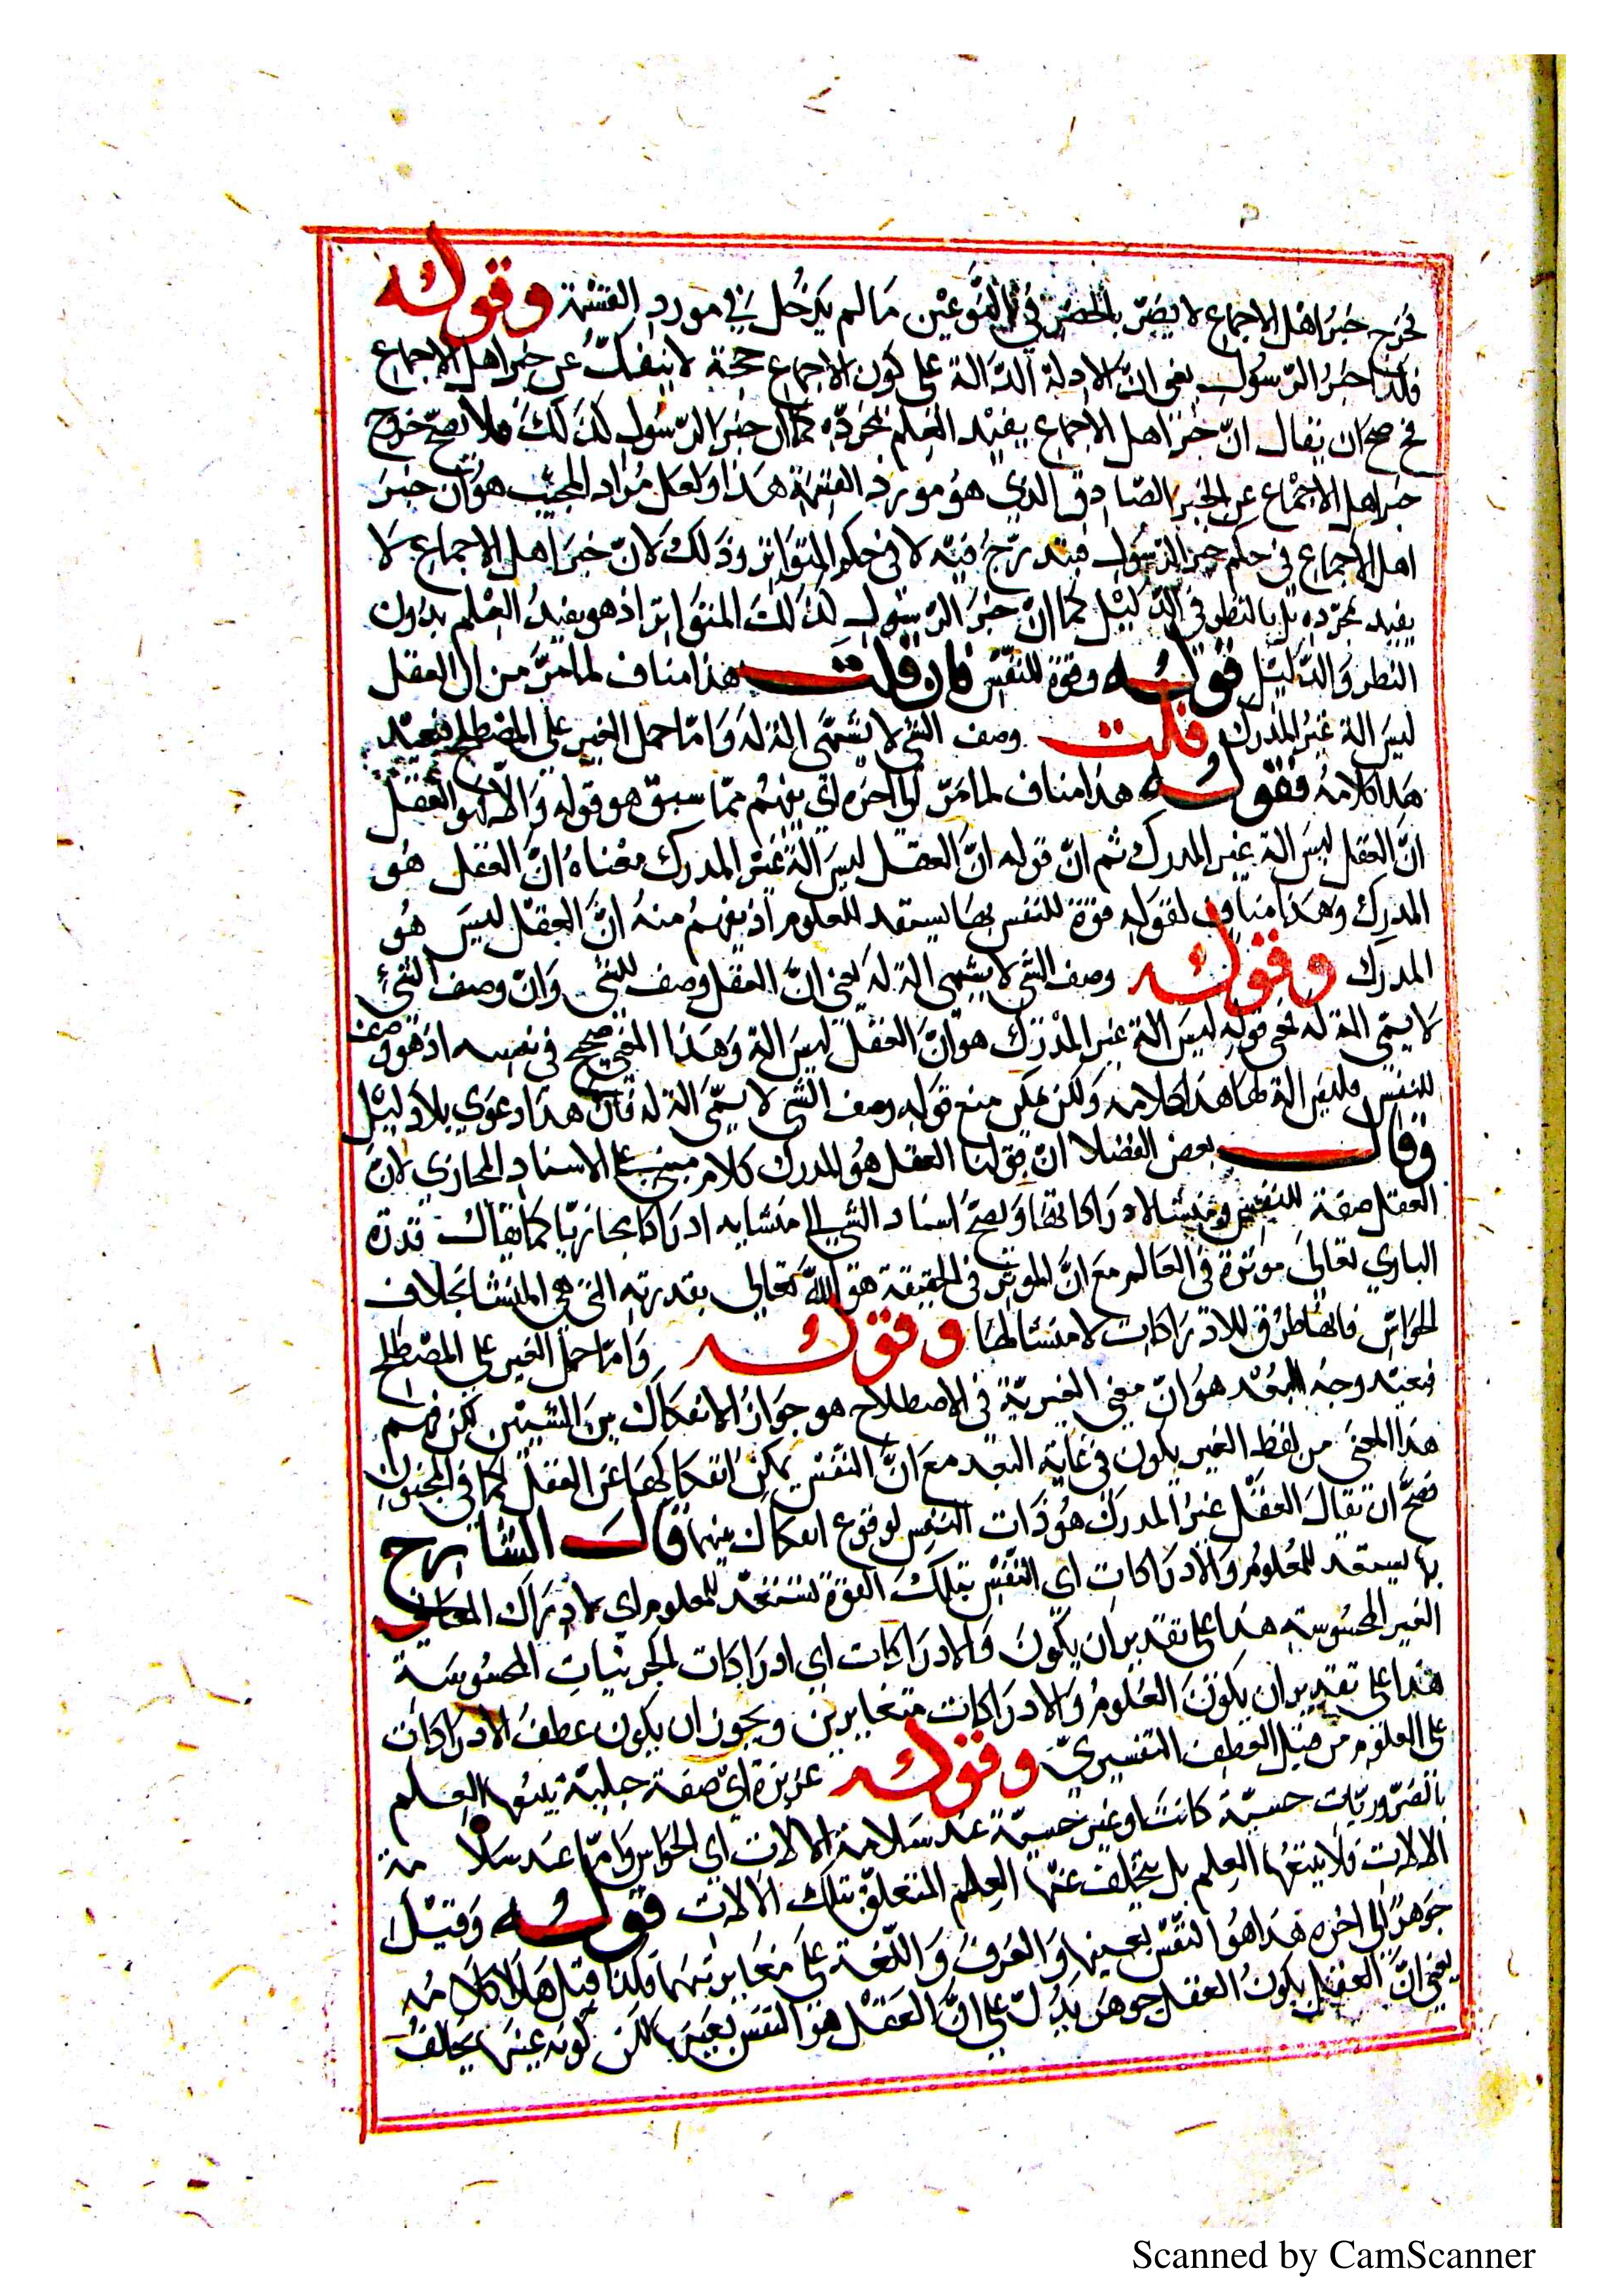 فخرج خبر اهل الاجماع لا يضر بالحصر في النوعين ما لم يدخل في مورد القسمة وقوله
فكذا خبر الرسول يعني ان الادلة الدالة على كون الاجماع حجة لا ينفك عن خبر اهل الاجماع
فح صح ان يقال ان خبر اهل الاجماع يفيد العلم بمجرده كما ان خبر الرسول كذلك فلا يصح خروج
خبر اهل الاجماع عن الخبر الصادق الذي هو مورد القسمة هذا ولعل مراد المجيب هو ان خبر
اهل الاجماع في حكم خبر الرسول فيندرج فيه لا في حكم المتواتر وذلك لان خبر اهل الاجماع لا
يفيد بمجرده بل بالنظر في الدليل كما ان خبر الرسول كذلك المتواتر اذ هو يفيد العلم بدون
النظر والدليل قوله وقوة للنفس فان قلت هذا مناف لما مر من ان العقل
ليس الة غير المدرك قلت وصف الشئ لا يسمى الة له واما حمل الغير على المصطلح فبعيد
هذا كلامه فقوله هذا مناف لما مر الى اخره اي يفهم مما سبق هو قوله والا فهو العقل
ان العقل ليس الة غير المدرك ثم ان قوله ان العقل ليس الة غير المدرك معناه ان العقل هو
المدرك وهذا مناف لقوله قوة للنفس بها يستعد للعلوم اذ يفهم منه ان العقل ليس هو
المدرك وقوله وصف الشئ لا يسمى الة له يعني ان العقل وصف للشئ وان وصف الشئ
لا يسمى الة له فمعنى قوله ليس الة غير المدرك هو ان العقل ليس الة وهذا المعنى صحيح في نفسه اذ هو وصف
للنفس فليس الة لها هذا كلامه ولكن يمكن منع قوله وصف الشئ لا يسمى الة له فان هذا دعوي بلا دليل
وقال بعض الفضلا ان قولنا العقل هو المدرك كلام مبني على الاسناد المجازي لان
العقل صفة للنفس ومنشا لادراكاتها ويصح اسناد الشئ الى منشايه ادراكا مجازيا كما يقال قدرة
الباري تعالى موثرة في العالم مع ان الموثر في الحقيقة هو الله تعالى بقدرته التي هي المنشا بخلاف
الحواس فانها طرق للادراكات لا منشا لها وقوله واما حمل الغير على المصطلح
فبعيد وجه البعد هو ان معنى الغيرية في الاصطلاح هو جواز الانفكاك بين الشيئين لكن فهم
هذا المعنى من لفظ الغير يكون في غاية البعد مع ان النفس يمكن انفكاكها عن العقل كما في المجنون
فصح ان يقال العقل غير المدرك هو ذات النفس لوقوع انفكاك بينهما قال الشارح
بها يستعد للعلوم والادراكات اي النفس بتلك القوة تستعد للعلوم اي لادراك المعاني
الغير المحسوسة هذا على تقدير ان يكون والادراكات اي ادراكات الجزئيات المحسوسة
هذا على تقدير ان يكون العلوم والادراكات متغايرين ويجوز ان يكون عطف الادراكات
على العلوم من قبيل العطف التفسيري وقوله غريزة اي صفة جبلية يتبعها العلم
بالضروريات حسية كانت او غير حسية عند سلامة الالات اي الحواس واما عند سلامة
الالات فلا يتبعها العلم بل يتخلف عنها العلم المتعلق بتلك الالات قوله وقيل
جوهر الى اخره هذا هو النفس بعينها والعرف واللغة على مغايرتهما فلذا قيل هذا كلامه
يعني ان العقل يكون العقل جوهر يدل على ان العقل هو النفس بعينها لكن كونه عينها يخالف
Scanned by CamScanner